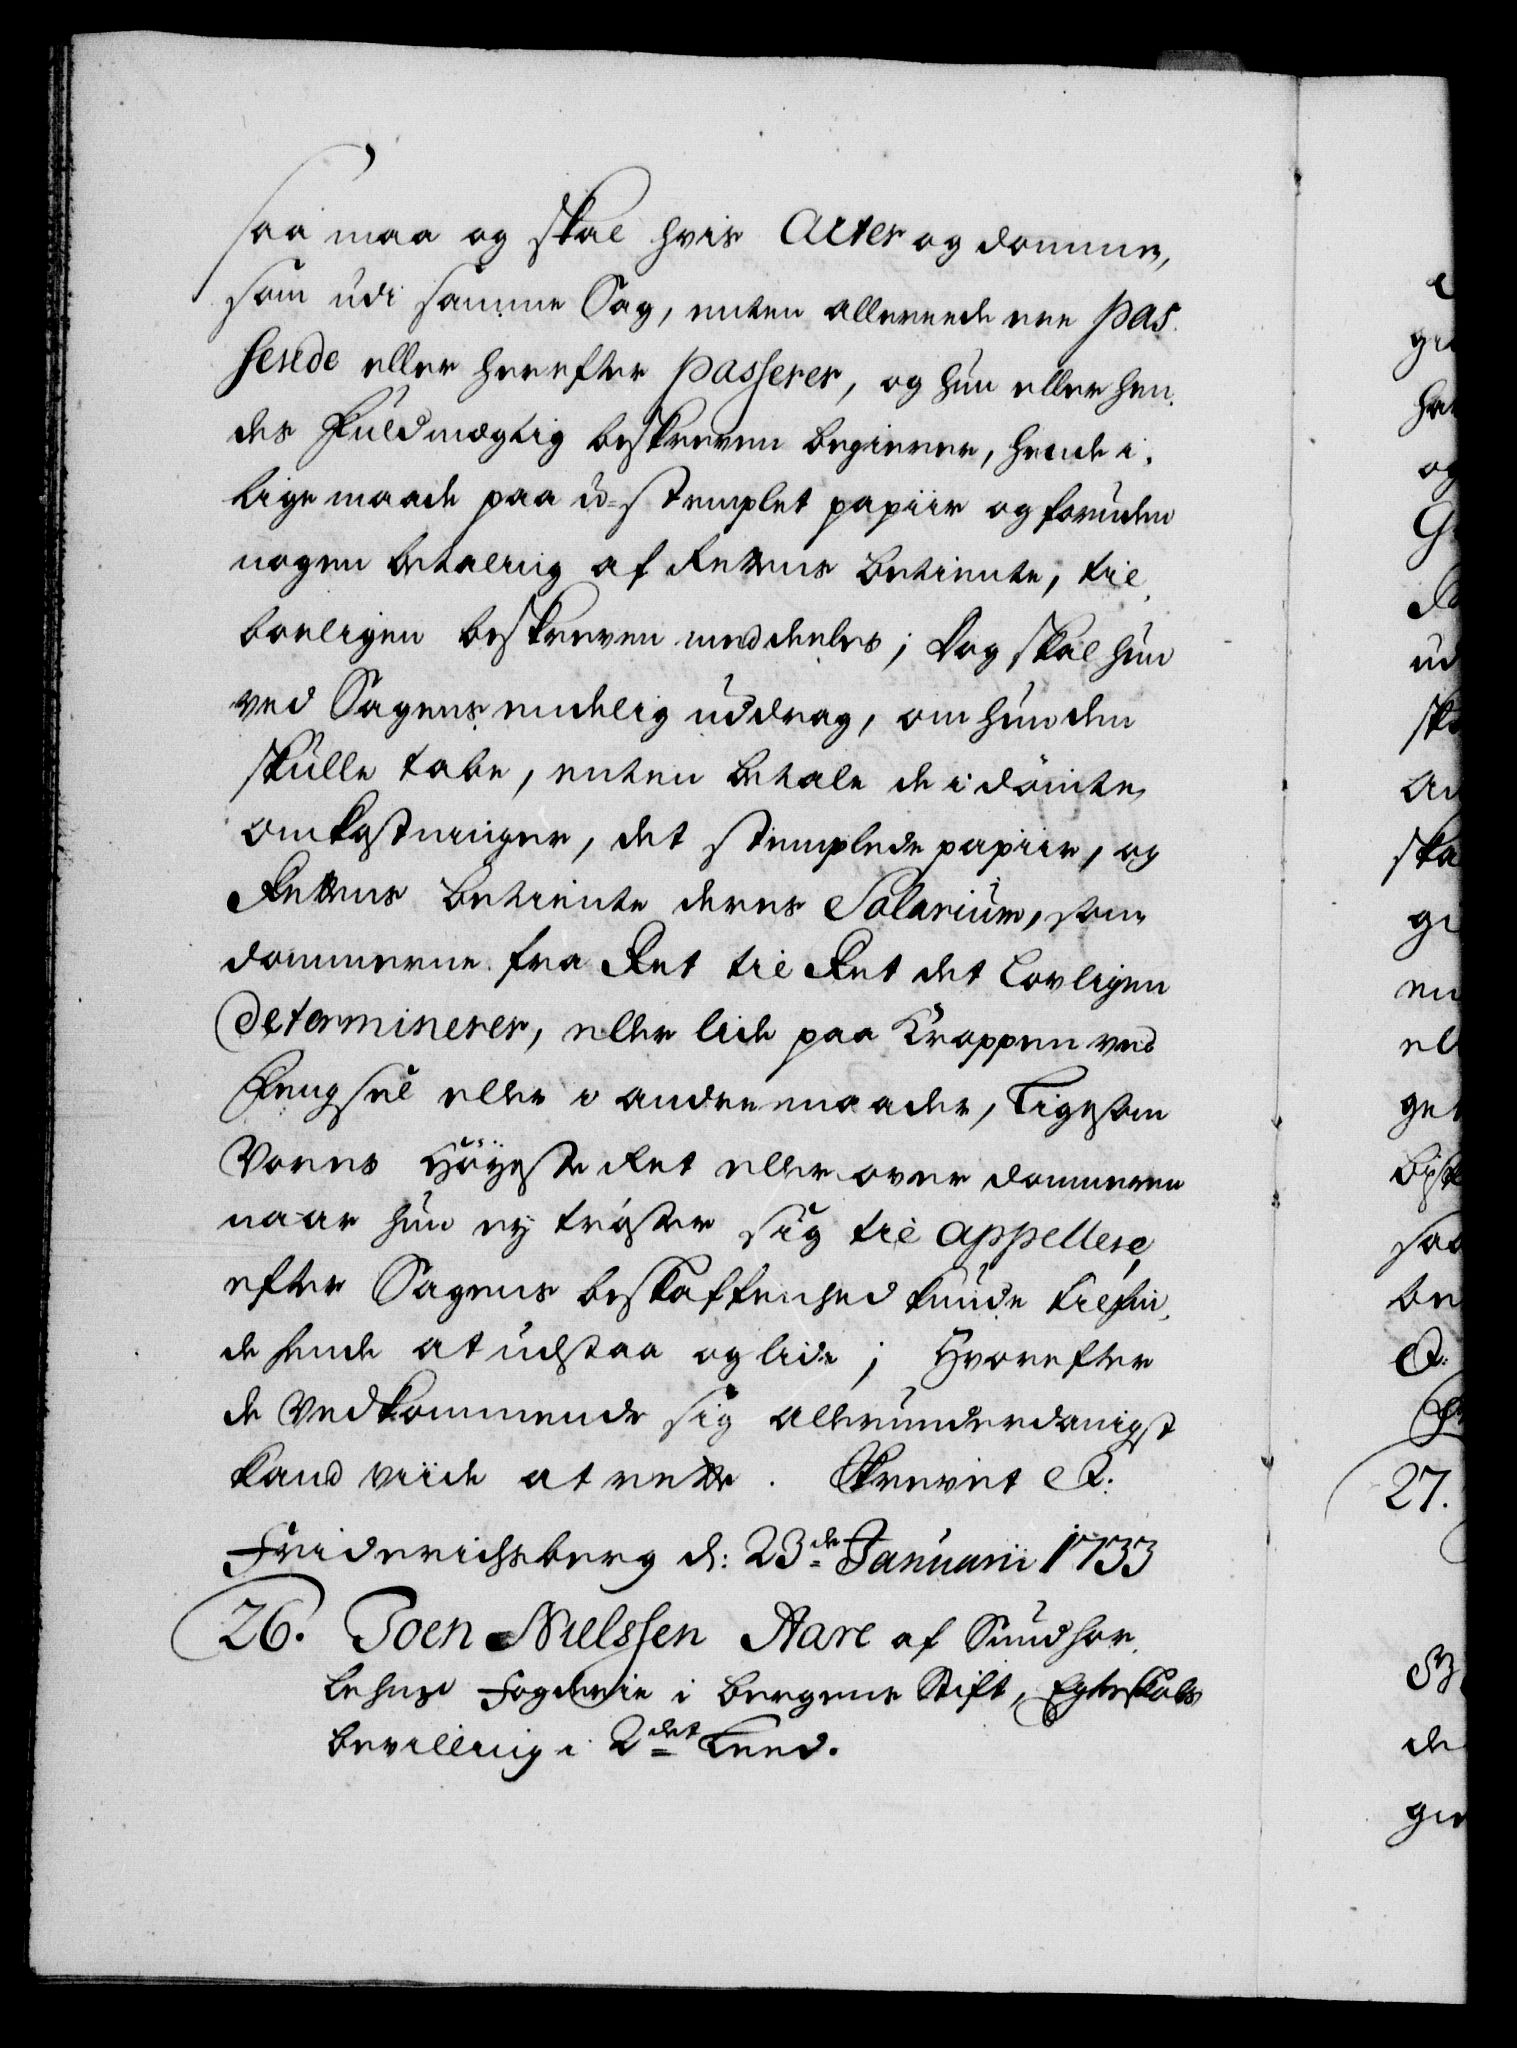 saa maa og skal hvis Acter og domme,
som udi samme Sag, enten allereede ere pas-
serede eller herefter passerer, og hun eller hen-
des Fuldmægtig beskreven begierer, hende i
lige maade paa u-stemplet papiir og foruden
nogen betaling af Rettens betiente, til-
børligen beskreven meddeeles; Dog skal hun
ved Sagens endelig uddrag, om hun den
skulle tabe, enten betale de idømte
omkostninger, det stemplede papiir, og
Rettens betiente deres Salarium, som
dommerne fra Ret til Ret det Lovligen
determinerer, eller lide paa Kroppen ved
Fengsel eller i andre maader, ligesom
Vores Høyeste Ret eller over dommeren
naar hun ey trøster sig til appellere,
efter Sagens beskaffenhed kunde tilfin-
de hende at udstaa og lide; Hvorefter
de Vedkommende sig allerunderdanigst
kand viide at rette. Skrevet &:
Friderichsberg d: 23de Januarii 1733
26. Joen Nielssen Aare af Sundhor-
lehns Fogderie i Bergens Stift, Egteskabs
bevilling i 2det Leed.
27.